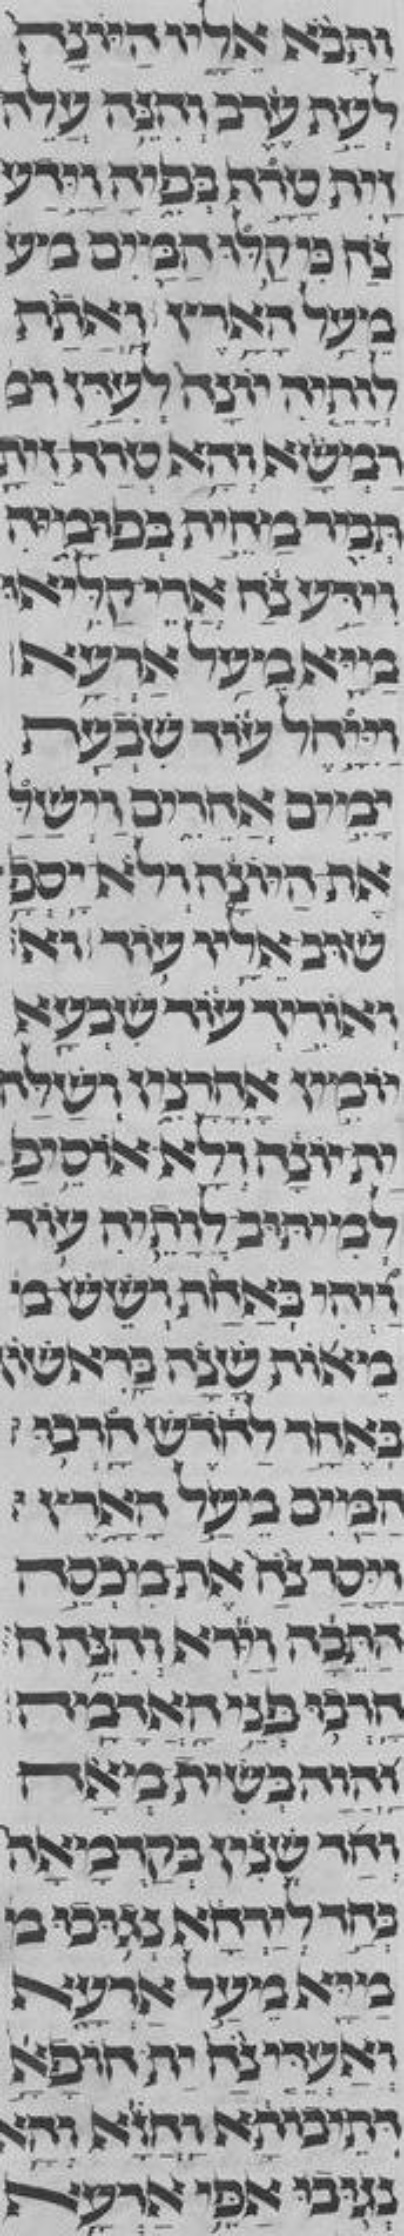 וַתָּבֹא אֵלָיו הַיּוֹנָה
לְעֵת עֶרֶב וְהִנֵּה עֲלֵה
זַיִת טָרָף בְּפִיהָ וַיֵּדַע
נֹחַ כִּי קַלּוּ הַמַּיִם מיע
מֵעַל הָאָרֶץ וַאֲתָת
לְוָתֵיהּ יוֹנָה לְעִדָּן רמ
רַמְשָׁא וְהָא טְרַף זֵית
תְּבִיר מַחִית בְּפוּמַיהּ
וִידַע נֹחַ אֲרֵי קַלִּיאוּ
מַיָּא מֵעַל אַרְעָא
וַיִּיָּחֶל עוֹד שִׁבְעַת
יָמִים אֲחֵרִים וַיְשַׁלַּ
אֶת הַיּוֹנָה וְלֹא יָסְפָ
שׁוּב אֵלָיו עוֹד וא
וְאוֹרֵיךְ עוֹד שִׁבְעָא
יוֹמִין אָחֳרָנִין וְשַׁלַּח
יָת יוֹנָה וְלָא אוֹסֵיפ
לְמִיתּוּב לְוָתֵיהּ עוֹד
וַיְהִי בְּאַחַת וְשֵׁשׁ מ
מֵאוֹת שָׁנָה בָּרִאשׁוֹן
בְּאֶחָד לַחֹדֶשׁ חָרְבוּ
הַמַּיִם מֵעַל הָאָרֶץ
וַיָּסַר נֹחַ אֶת מִכְסֵה
הַתֵּבָה וַיַּרְא וְהִנֵּה ח
חָרְבוּ פְּנֵי הָאֲדָמָה
וַהֲוָה בְּשִׁית מְאָה
וְחַד שְׁנִין בְּקַדְמָאָה
בְּחַד לְיַרְחָא נְגוּבוּ מ
מַיָּא מֵעַל אַרְעָא
וְאַעְדִּי נֹחַ יָת חוֹפָאָ
דְּתֵיבוֹתָא וַחֲזָא וְהָא
נְגוּבוּ אַפֵּי אַרְעָא